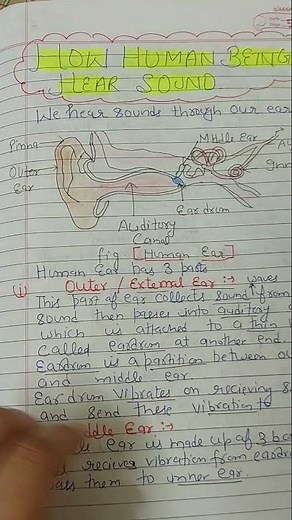 HOW HUMAN BEING
HEAR SOUND
We hear sounds through our ear
Pinna
Middle Ear
Outer
Ear
Ear drum
Auditory
Canal
fig [Human Ear]
Human Ear has 3 parts
(i) Outer / External Ear :- waves
This part of ear collects sound from
sound then passes into auditory
which is attached to a thin
called eardrum at another end.
Eardrum is a partition between ou
and middle ear.
Ear drum vibrates on recieving s
and send these vibration to
ddle Ear :-
ear is made up of 3 bo
reciever vibration from eardr
them to inner ear.